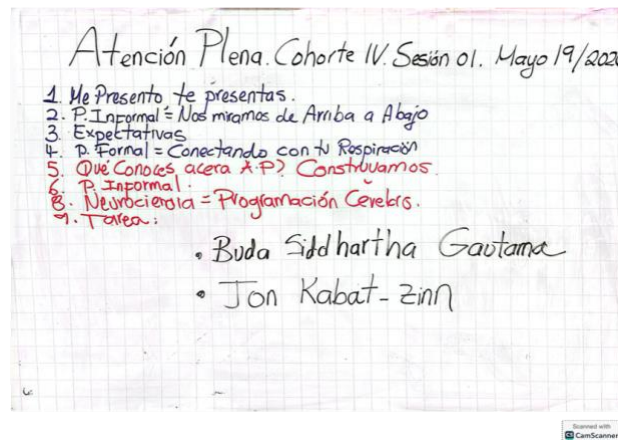 Atención Plena. Cohorte IV. Sesión 01. Mayo 19/202
1. Me Presento, te presentas.
2. P. Informal = Nos miramos de Arriba a Abajo
3. Expectativas
4. P. Formal = Conectando con tu Respiración
5. Qué Conoces acera A.P? Construvamos.
6. P. Informal.
8. Neurociencia = Programación Cerebrs.
9. Tarea:
• Buda Siddhartha Gautama
• Jon Kabat-Zinn
Scanned with
CS CamScanner